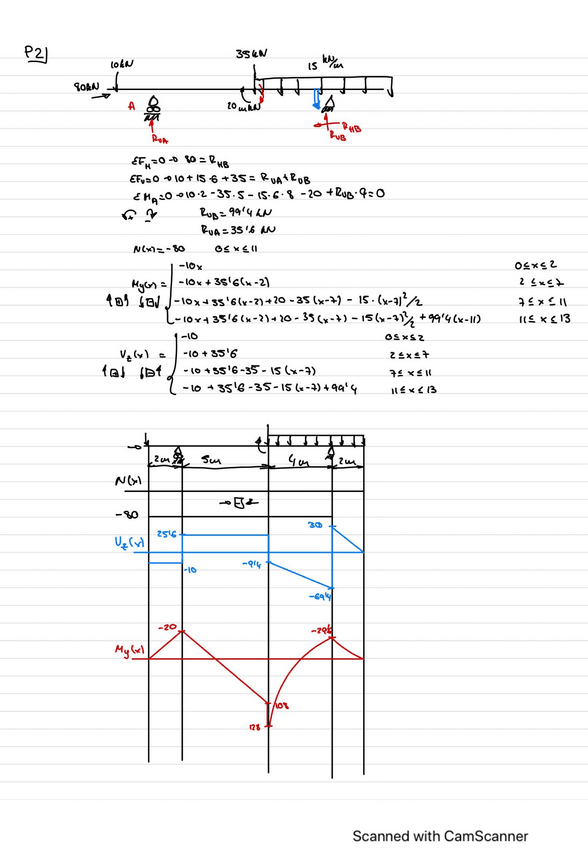 P2]
10kN 35kN 15 kN/m
80kN
A 20mkN
RVA RVB RHB
ΣFH=0 → 80=RHB
ΣFV=0 → 10+15·6+35=RVA+RVB
ΣMA=0 → 10·2-35·5-15·6·8-20+RVB·9=0
RVB=99'4 kN
RVA=35'6 kN
N(x)=-80 0≤x≤11
-10x 0≤x≤2
My(x)= -10x+35'6(x-2) 2≤x≤7
-10x+35'6(x-2)+20-35(x-7)-15·(x-7)²/2 7≤x≤11
-10x+35'6(x-2)+20-35(x-7)-15(x-7)²/2+99'4(x-11) 11≤x≤13
-10 0≤x≤2
Vz(x)= -10+35'6 2≤x≤7
-10+35'6-35-15(x-7) 7≤x≤11
-10+35'6-35-15(x-7)+99'4 11≤x≤13
2m 5m 4m 2m
N(x)
-80
25'6 30
Vz(x)
-10 -9'4
-69'4
-20 -29'6
My(x)
108
128
Scanned with CamScanner